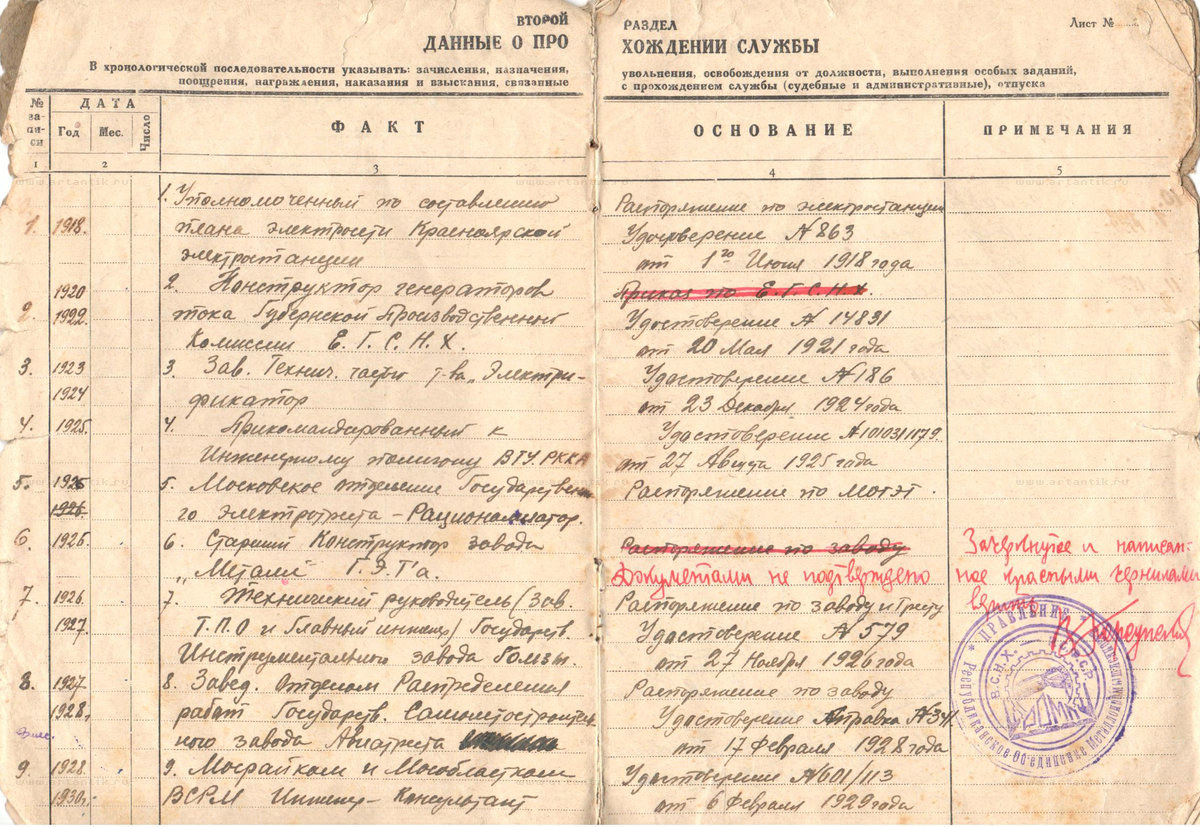 ВТОРОЙ РАЗДЕЛ
Лист №
ДАННЫЕ О ПРОХОЖДЕНИИ СЛУЖБЫ
В хронологической последовательности указывать: зачисления, назначения, увольнения, освобождения от должности, выполнения особых заданий,
поощрения, награждения, наказания и взыскания, связанные с прохождением службы (судебные и административные), отпуска
№ за-пи-си
ДАТА
Год Мес. Число
ФАКТ
ОСНОВАНИЕ
ПРИМЕЧАНИЯ
1 2 3 4 5
www.artantik.ru
1. Уполномоченный по составлению Распоряжение по электростанции
1. 1918. плана электросети Красноярской Удостоверение №863
электростанции от 1го Июня 1918 года
1920 2. Конструктор генераторов Приказ по Е.Г.С.Н.Х.
2. 1922. тока Губернской Производственной Удостоверение № 14831
Комиссии Е.Г.С.Н.Х. от 20 Мая 1921 года
3. 1923 3. Зав. Технич. части т-ва „Электри- Удостоверение №186
1924 фикатор от 23 Декабря 1924 года
4. 1925. 4. Прикомандированный к Удостоверение №101031179.
Инженерному полигону ВТУ.РККА от 27 Августа 1925 года
5. 1925 5. Московское отделение Государственно- Распоряжение по МОГЭТ.
1926. го электротреста - Рационализатор.
6. 1926. 6. Старший Конструктор завода Распоряжение по заводу
„Металл" Г.Э.Т'а. Документами не подтверждено
Зачеркнутое и написан-
ное красными чернилами
верить
7. 1926. 7. Технический руководитель (Зав. Распоряжение по заводу и Тресту
1927. Т.П.О и Главный инженер) Государств. Удостоверение № 579
Инструментального завода Гомзы. от 27 Ноября 1926 года
8. 1927 8. Завед. отделом Распределения Распоряжение по заводу
1928. работ Государств. Самолетостроитель- Удостоверение Справка №34
ного завода Авиатреста от 17 Февраля 1928 года
9. 1928. 9. Мосрайком и Мособластком Удостоверение №601/113
1930г. ВСРМ Инженер-Консультант от 6 Февраля 1929 года
ПРАВЛЕНИЕ
В.С.Н.Х. С.С.С.Р.
Объединение